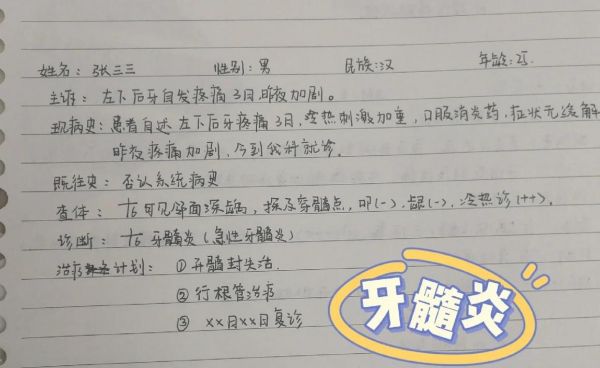 姓名：张三三 性别：男 民族：汉 年龄：25.
主诉：左下后牙自发疼痛3日，昨夜加剧。
现病史：患者自述 左下后牙疼痛3日，冷热刺激加重，口服消炎药，症状无缓解
昨夜疼痛加剧，今到我科就诊．
既往史：否认系统病史
查体：可见𬌗面深龋，探及穿髓点，叩(-)，龈(-)，冷热诊(++)．
诊断：牙髓炎（急性牙髓炎）
治疗计划：① 开髓封失活．
② 行根管治疗
③ ××日××日复诊
牙髓炎